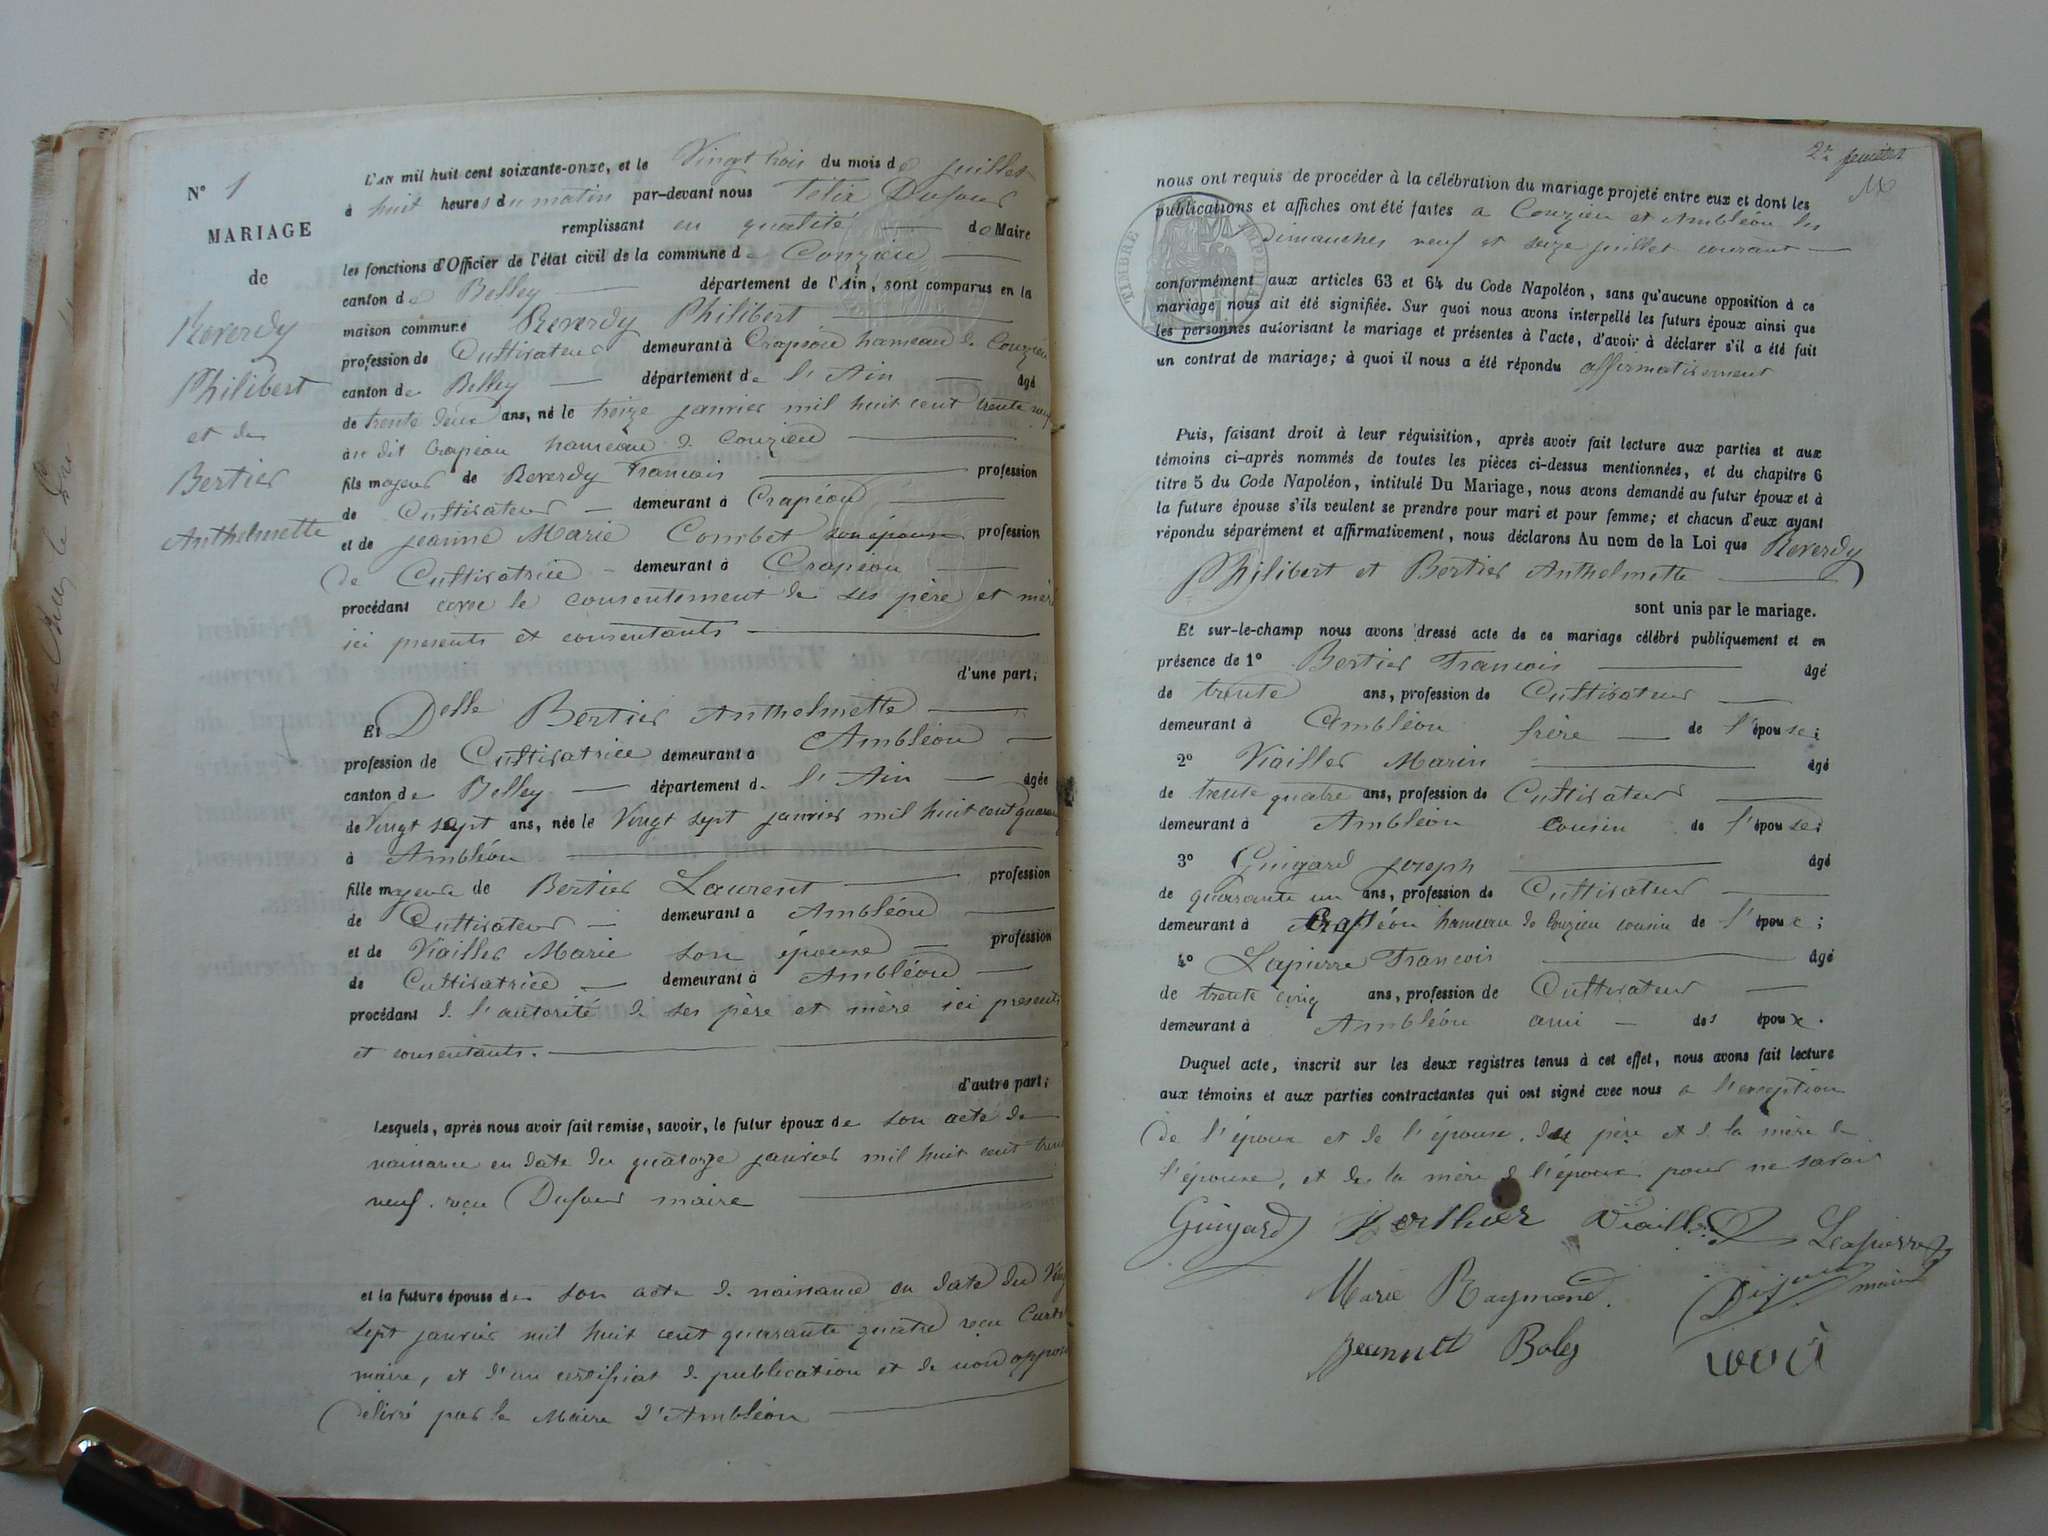 N° 1
MARIAGE
de
Reverdy
Philibert
et de
Bertier
Anthelmette
L'AN mil huit cent soixante-onze, et le Vingt trois du mois de juillet
à huit heures du matin par-devant nous Félix Dufour
remplissant en qualité de Maire
les fonctions d'Officier de l'état civil de la commune de Conzieu
canton de Belley département de l'Ain, sont comparus en la
maison commune Reverdy Philibert
profession de Cultivateur demeurant à Crapéou hameau de Conzieu
canton de Belley département de l'Ain âgé
de trente deux ans, né le treize janvier mil huit cent trente neuf
au dit Crapéou hameau de Conzieu
fils majeur de Reverdy Francois profession
de Cultivateur demeurant à Crapéou
et de jeanne Marie Combet son épouse profession
de Cultivatrice demeurant à Crapéou
procédant avec le consentement de ses père et mère
ici presents et consentants
d'une part;
Et Delle Bertier Anthelmette
profession de Cultivatrice demeurant à Ambléon
canton de Belley département de l'Ain âgée
de Vingt sept ans, née le Vingt sept janvier mil huit cent quarante
à Ambléon
fille majeure de Bertier Laurent profession
de Cultivateur demeurant à Ambléon
et de Viallet Marie son épouse profession
de Cultivatrice demeurant à Ambléon
procédant de l'autorité de ses père et mère ici presents
et consentants.
d'autre part;
Lesquels, après nous avoir fait remise, savoir, le futur époux de son acte de
naissance en date du quatorze janvier mil huit cent trente
neuf. reçu Dufour maire
et la future épouse de son acte de naissance en date du Vingt
sept janvier mil huit cent quarante quatre reçu
maire, et d'un certificat de publication et de non
délivré par le Maire d'Ambléon
2e feuillet
nous ont requis de procéder à la célébration du mariage projeté entre eux et dont les
publications et affiches ont été faites a Conzieu et Ambléon les
dimanches neuf et seize juillet courant
TIMBRE IMPERIAL
conformément aux articles 63 et 64 du Code Napoléon, sans qu'aucune opposition à ce
mariage nous ait été signifiée. Sur quoi nous avons interpellé les futurs époux ainsi que
les personnes autorisant le mariage et présentes à l'acte, d'avoir à déclarer s'il a été fait
un contrat de mariage; à quoi il nous a été répondu affirmativement
Puis, faisant droit à leur réquisition, après avoir fait lecture aux parties et aux
témoins ci-après nommés de toutes les pièces ci-dessus mentionnées, et du chapitre 6
titre 5 du Code Napoléon, intitulé Du Mariage, nous avons demandé au futur époux et à
la future épouse s'ils veulent se prendre pour mari et pour femme; et chacun d'eux ayant
répondu séparément et affirmativement, nous déclarons Au nom de la Loi que Reverdy
Philibert et Bertier Anthelmette
sont unis par le mariage.
Et sur-le-champ nous avons dressé acte de ce mariage célébré publiquement et en
présence de 1° Bertier Francois âgé
de trente ans, profession de Cultivateur
demeurant à Ambléon frère de l'épouse;
2° Viallet Marin âgé
de trente quatre ans, profession de Cultivateur
demeurant à Ambléon cousin de l'épouse;
3° Guigard joseph âgé
de quarante un ans, profession de Cultivateur
demeurant à Crapéou hameau de Conzieu cousin de l'époux;
4° Lapierre Francois âgé
de trente cinq ans, profession de Cultivateur
demeurant à Ambléon ami des époux.
Duquel acte, inscrit sur les deux registres tenus à cet effet, nous avons fait lecture
aux témoins et aux parties contractantes qui ont signé avec nous a l'exception
de l'époux et de l'épouse, du père et de la mère de
l'épouse, et de la mère de l'époux pour ne savoir
Guigard Berthier Viallet Lapierre
Marie Raymond. Dufour maire
jeannet Boley